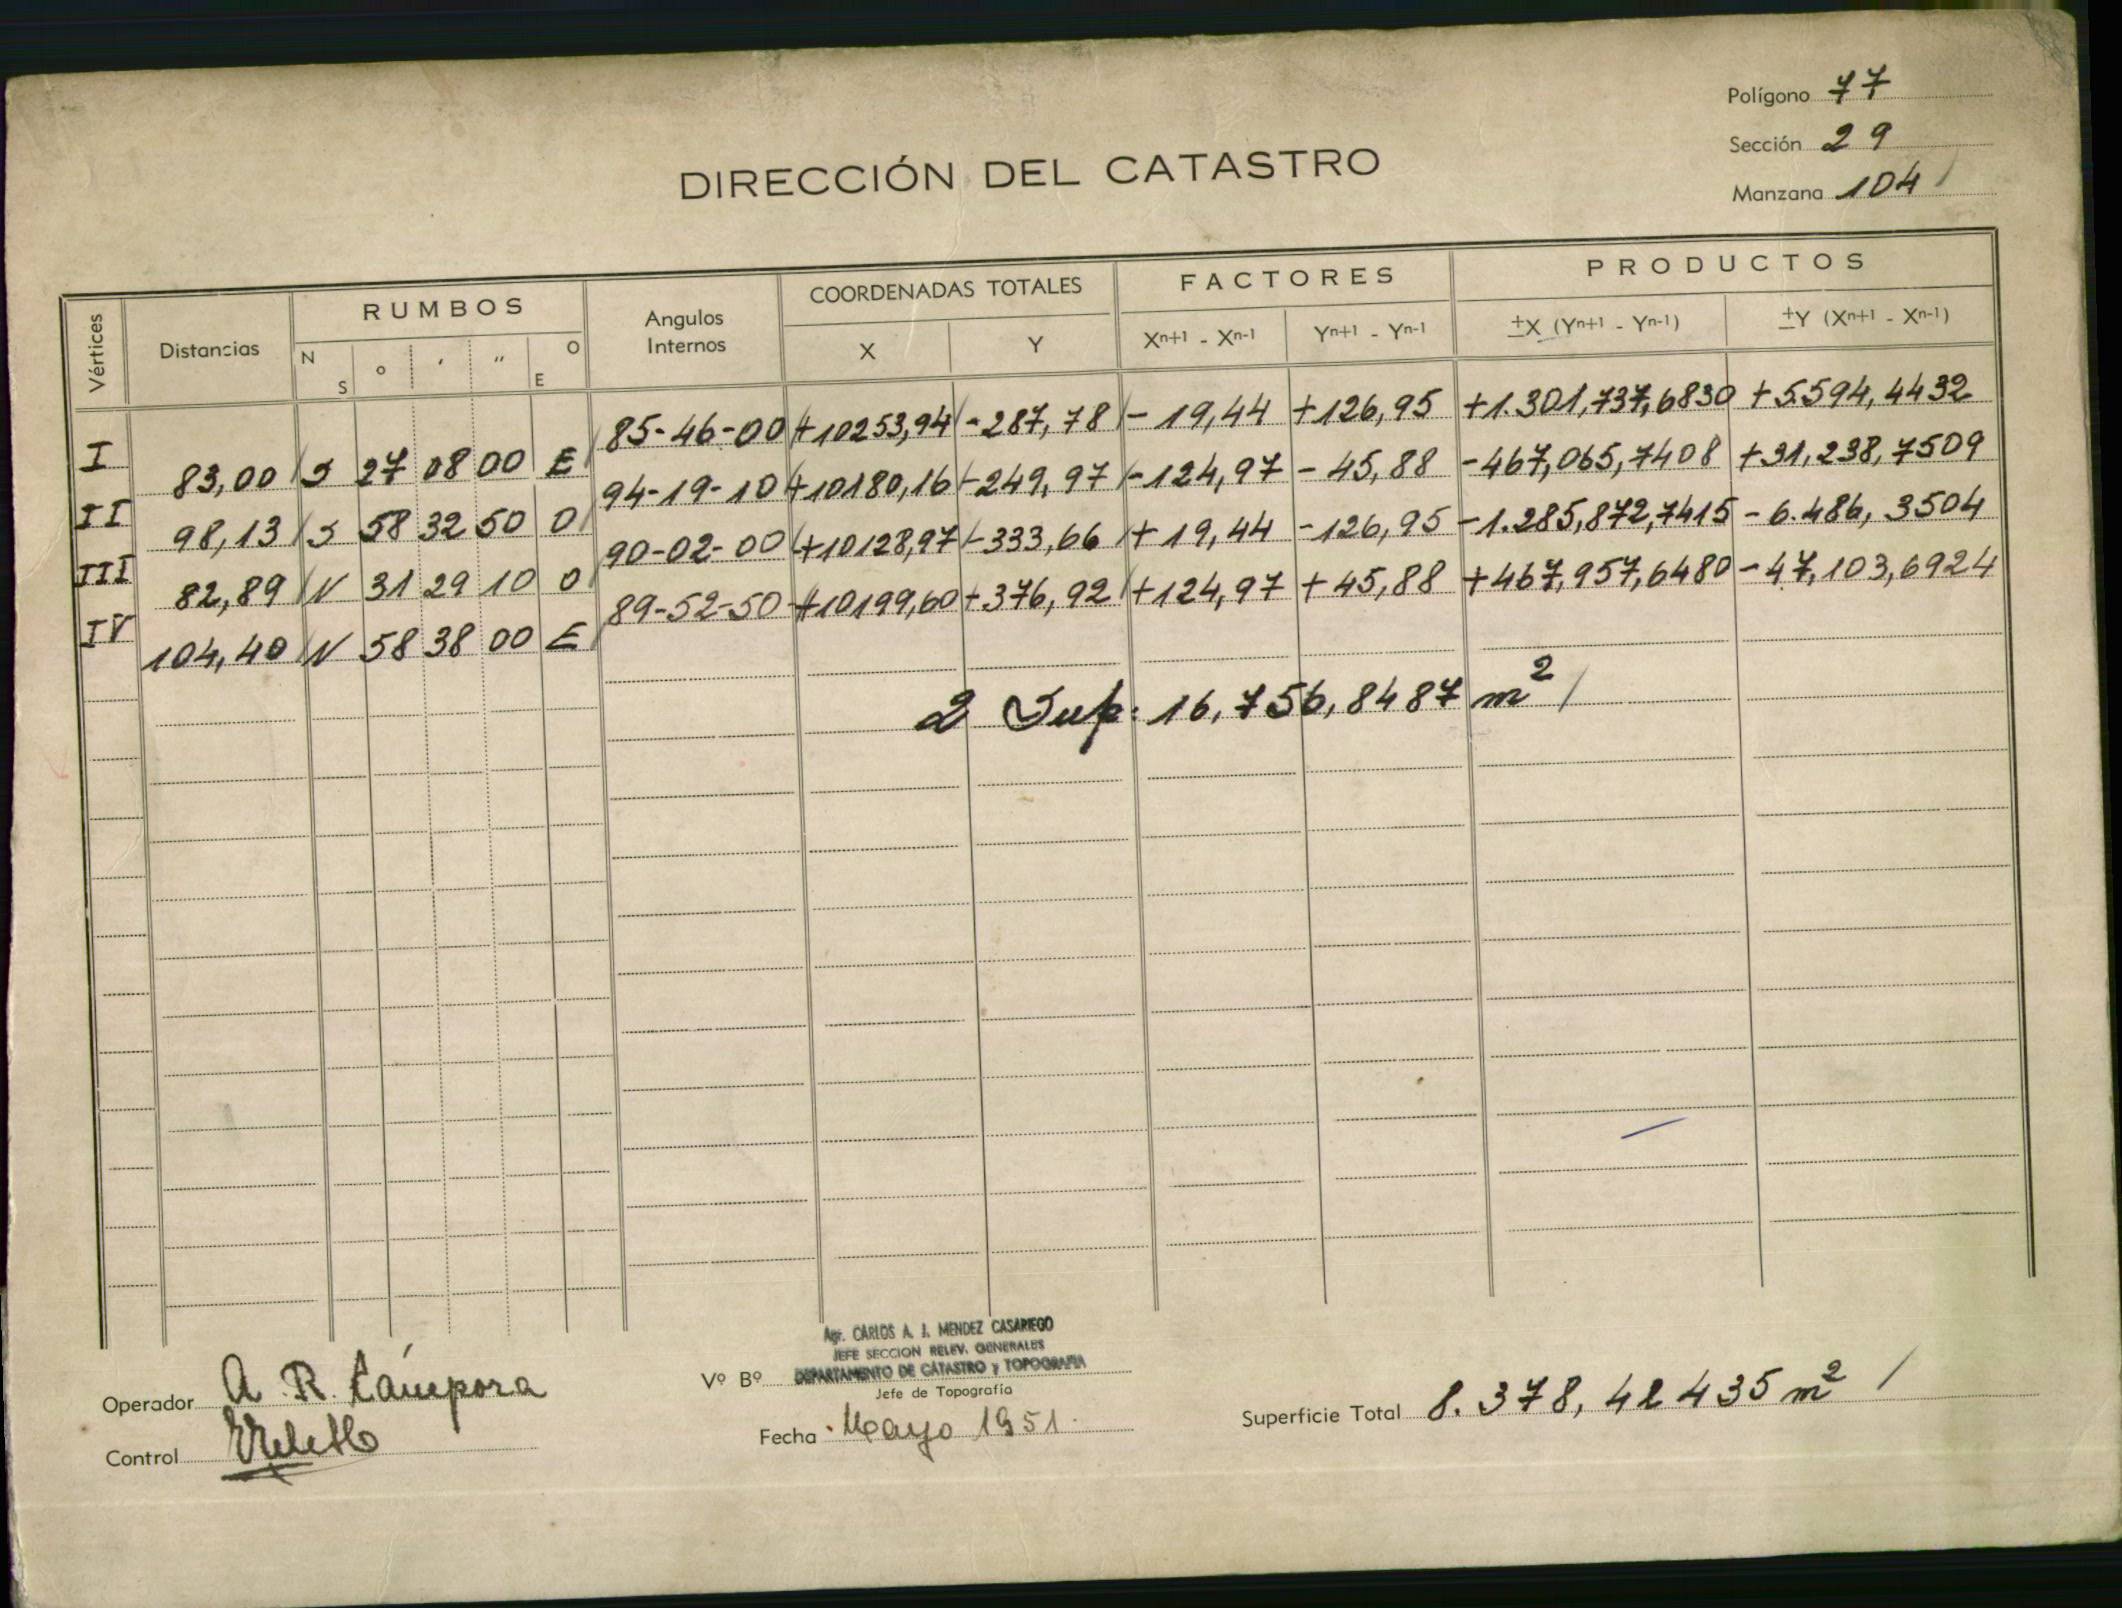 Polígono 77
Sección 29
Manzana 104
DIRECCIÓN DEL CATASTRO
Vértices Distancias RUMBOS Angulos Internos COORDENADAS TOTALES FACTORES PRODUCTOS
N S ° ' " O E X Y Xn+1 - Xn-1 Yn+1 - Yn-1 ±X (Yn+1 - Yn-1) ±Y (Xn+1 - Xn-1)
85-46-00 +10253,94 -287,78 -19,44 +126,95 +1.301,737,6830 +5.594,4432
I 83,00 S 27 08 00 E
94-19-10 +10180,16 -249,97 -124,97 -45,88 -467,065,7408 +31,238,7509
II 98,13 S 58 32 50 O
90-02-00 +10128,97 -333,66 +19,44 -126,95 -1.285,872,7415 -6.486,3504
III 82,89 N 31 29 10 O
89-52-50 +10199,60 -376,92 +124,97 +45,88 +467,957,6480 -47,103,6924
IV 104,40 N 58 38 00 E
2 Sup: 16,756,8487 m²
Operador A. R. Cámpora
Control
Vº Bº Agr. CARLOS A. J. MENDEZ CASARIEGO
JEFE SECCION RELEV. GENERALES
DEPARTAMENTO DE CATASTRO y TOPOGRAFIA
Jefe de Topografía
Fecha Mayo 1951.
Superficie Total 8.378,42435 m²